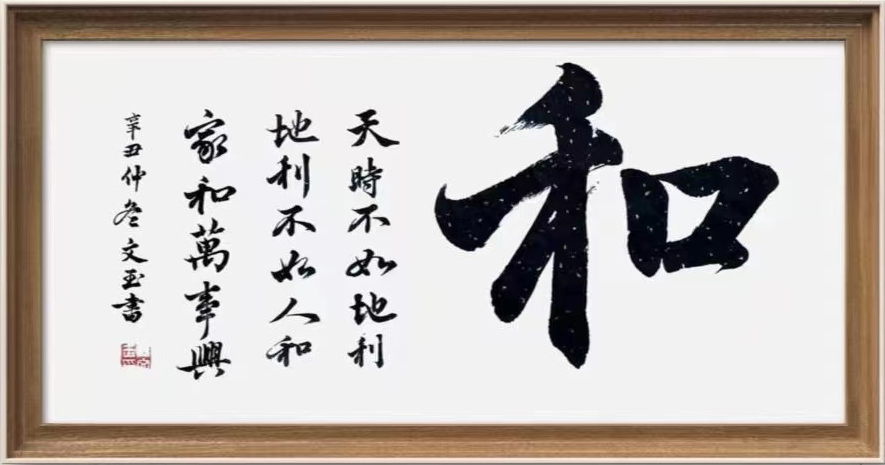 和
天時不如地利
地利不如人和
家和萬事興
辛丑仲冬文玉書